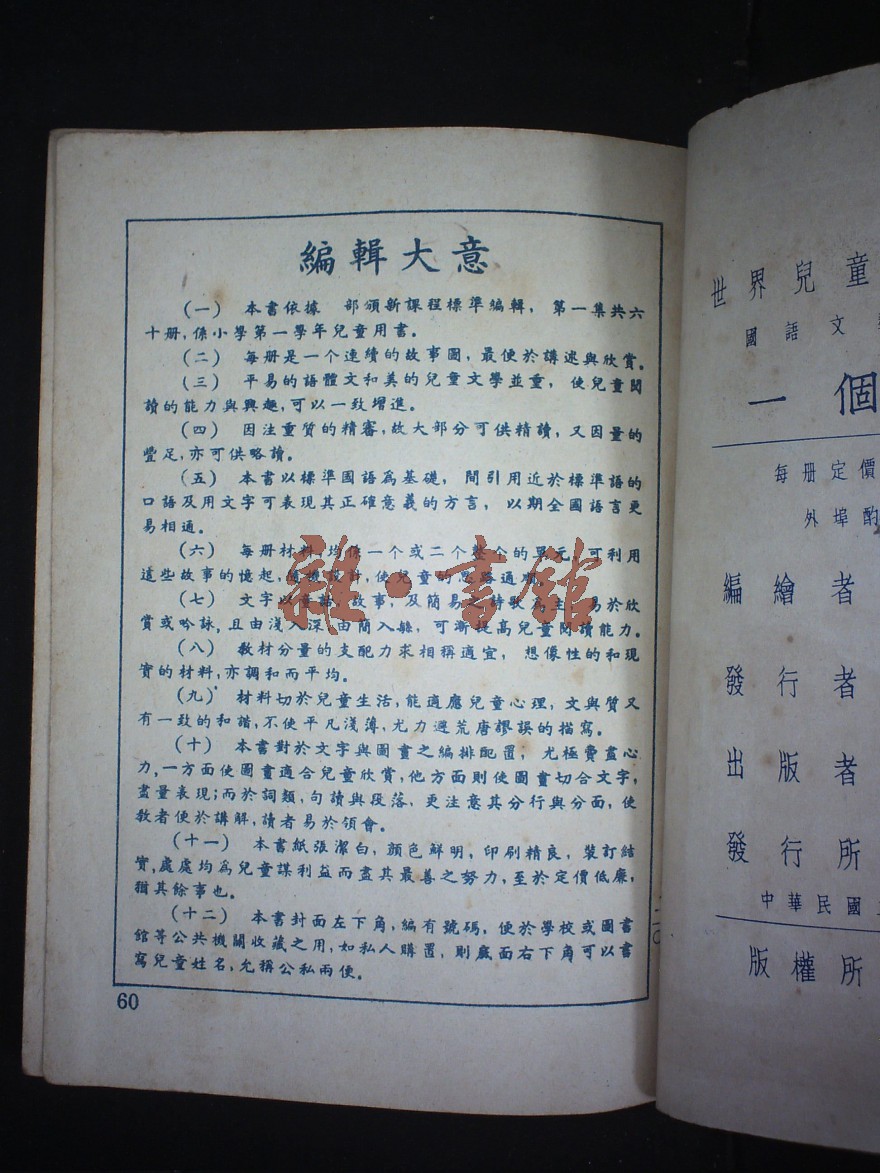 編輯大意
(一) 本書依據 部頒新課程標準編輯, 第一集共六
十册, 係小學第一學年兒童用書。
(二) 每册是一个連續的故事圖, 最便於講述與欣賞。
(三) 平易的語體文和美的兒童文學並重, 使兒童閱
讀的能力與興趣, 可以一致增進。
(四) 因注重質的精審, 故大部分可供精讀, 又因量的
豐足, 亦可供略讀。
(五) 本書以標準國語為基礎, 間引用近於標準語的
口語及用文字可表現其正確意義的方言, 以期全國語言更
易相通。
(六) 每册材料, 均係一个或二个整个的單元, 可利用
這些故事的憶起, 隨機設計, 使兒童的思路通
(七) 文字以童話, 故事, 及簡易之詩歌為主, 易於欣
賞或吟詠, 且由淺入深, 由簡入緐, 可漸提高兒童閱讀能力。
(八) 教材分量的支配力求相稱適宜, 想像性的和現
實的材料, 亦調和而平均。
(九) 材料切於兒童生活, 能適應兒童心理, 文與質又
有一致的和諧, 不使平凡淺薄, 尤力避荒唐謬誤的描寫。
(十) 本書對於文字與圖畫之編排配置, 尤極費盡心
力, 一方面使圖畫適合兒童欣賞, 他方面則使圖畫切合文字,
盡量表現; 而於詞類, 句讀與段落, 更注意其分行與分面, 使
教者便於講解, 讀者易於領會。
(十一) 本書紙張潔白, 顏色鮮明, 印刷精良, 裝訂結
實, 處處均為兒童謀利益而盡其最善之努力, 至於定價低廉,
猶其餘事也。
(十二) 本書封面左下角, 編有號碼, 便於學校或圖書
館等公共機關收藏之用, 如私人購置, 則底面右下角可以書
寫兒童姓名, 允稱公私兩便。
60
二〇
雜·書館
世界兒童
國語文
一個
每册定價
外埠酌
編繪者
發行者
出版者
發行所
中華民國
版權所